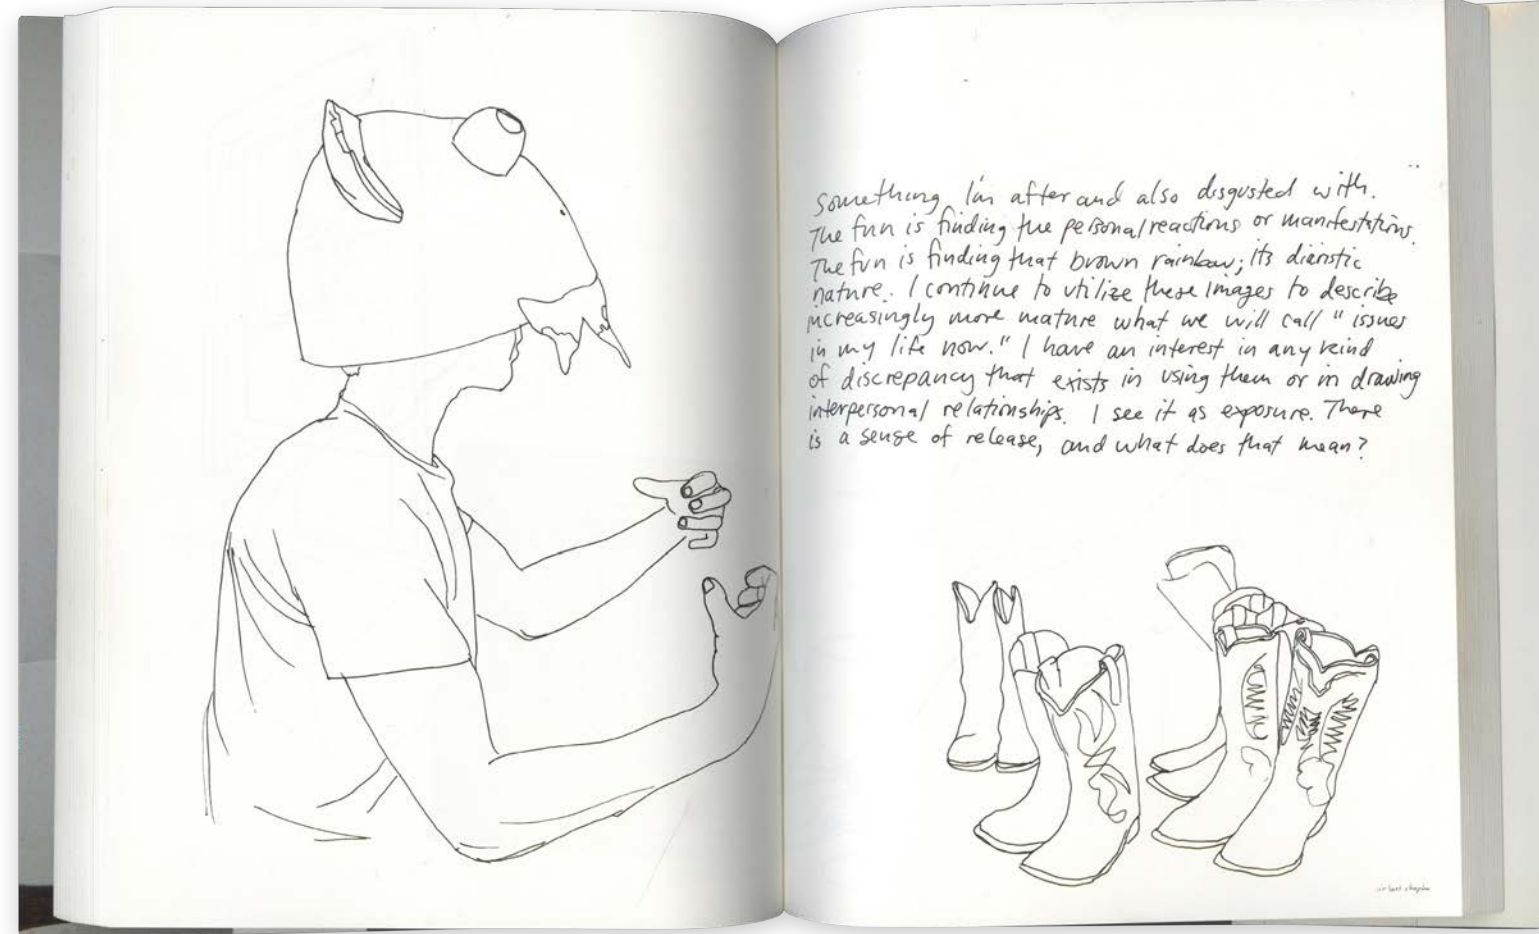 Something I'm after and also disgusted with.
The fun is finding the personal reactions or manifestations.
The fun is finding that brown rainbow; its diaristic
nature. I continue to utilize these images to describe
increasingly more mature what we will call "issues
in my life now." I have an interest in any kind
of discrepancy that exists in using them or in drawing
interpersonal relationships. I see it as exposure. There
is a sense of release, and what does that mean?